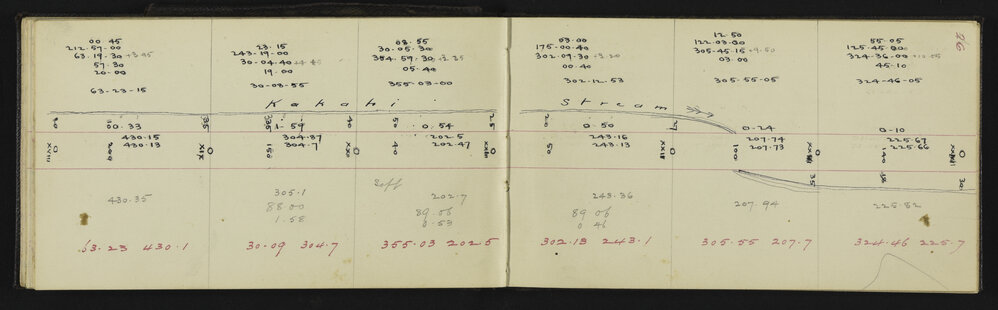 26
00.45
212.57.00
63.19.30 +3.45
57.30
20.00
63-23-15
23.15
243-19-00
30.04.40 +4.45
19.00
30-08-55
08.55
30.05.30
354.59.30 +3.35
05.40
355-03-00
03.00
175-00.40
302.09.30 +3.20
00.40
302.12.53
12.50
122.03.30
305.45.15 +9.50
03.00
305-55-05
55-05
125-45-00
324-36-00
45-10
324-46-05
Kakahi Stream
00.33
1-59
0.54
0-50
0-24
0-10
430.15
430.13
304.87
304.7
202.5
202.47
243.16
243.13
207.74
207.73
225.67
225.66
XVIII
200
XIX
150
XX
40
XXI
50
XXII
100
140
30
430.35
305.1
88.00
1.58
202.7
89.06
0.53
243.36
89 06
0 46
207.94
225.82
63.23 430.1
30.09 304.7
355.03 202.5
302.13 243.1
305.55 207.7
324.46 225.7